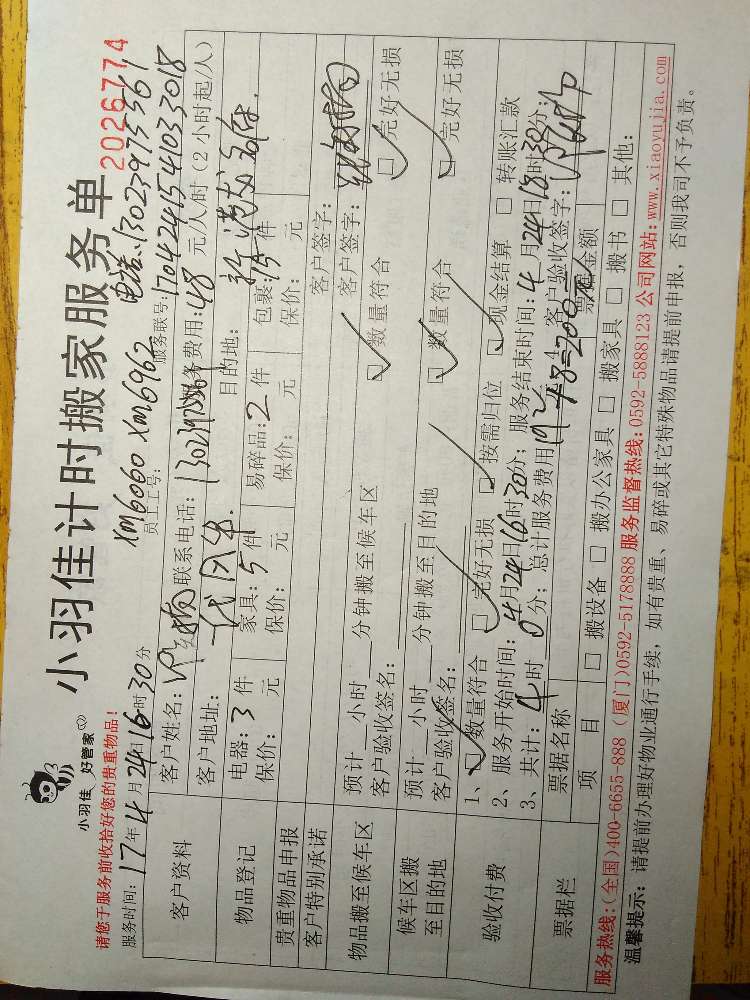 小羽佳 好管家
小羽佳计时搬家服务单
2026774
请您于服务前收拾好您的贵重物品！
电话:13023975361
服务时间：17年4月24日16时30分
员工工号：xm6060 xm6962
服务联号：1704241541033018
客户资料
客户姓名： 联系电话： 服务费用：48元/人/时（2小时起/人）
客户地址： 目的地：
物品登记
电器：3件 家具：5件 易碎品：2件 包裹：15件
保价： 元 保价： 元 保价： 元 保价： 元
贵重物品申报
客户特别承诺 客户签字：
物品搬至候车区
预计 小时 分钟搬至候车区 客户签字：
客户验收签名： 数量符合 完好无损
候车区搬至目的地
预计 小时 分钟搬至目的地
客户验收签名： 数量符合 完好无损
验收付费
1、 数量符合 完好无损 按需归位 现金结算 转账汇款
2、服务开始时间：4月24日16时30分；服务结束时间：4月24日18时30分；
3、共计：4时0分；总计服务费用 客户验收签字：
票据栏
票据名称 票据金额
项目 搬设备 搬办公家具 搬家具 搬书 其他：
服务热线：(全国)400-6655-888 (厦门)0592-5178888 服务监督热线：0592-5888123 公司网站：www.xiaoyujia.com
温馨提示：请提前办理好物业通行手续，如有贵重、易碎或其它特殊物品请提前申报，否则我司不予负责。